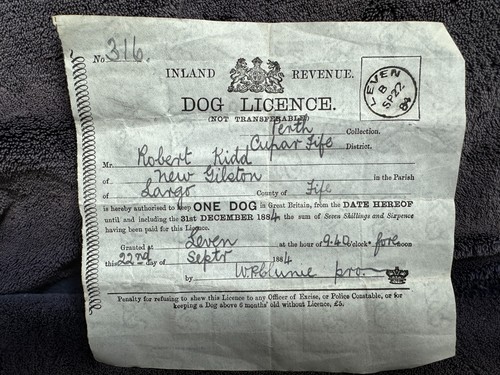 No 316.
INLAND REVENUE.
LEVEN
B
SP 22
84
DOG LICENCE.
(NOT TRANSFERABLE)
Perth Collection.
Cupar Fife District.
Mr. Robert Kidd
of New Gilston in the Parish
of Largo County of Fife
is hereby authorised to keep ONE DOG in Great Britain, from the DATE HEREOF
until and including the 31st DECEMBER 1884, the sum of Seven Shillings and Sixpence
having been paid for this Licence.
Granted at Leven at the hour of 9.40 o'clock fore noon
this 22nd day of Septr 1884
by pro.
Penalty for refusing to shew this Licence to any Officer of Excise, or Police Constable, or for
keeping a Dog above 6 months' old without Licence, £5.